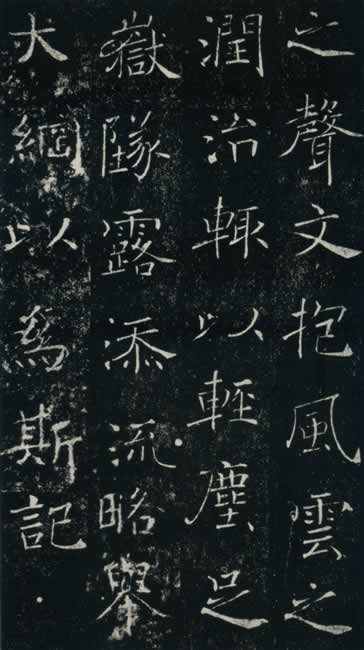 之聲文抱風雲之
潤治輙以輕塵足
嶽隊露添流略舉
大綱以爲斯記